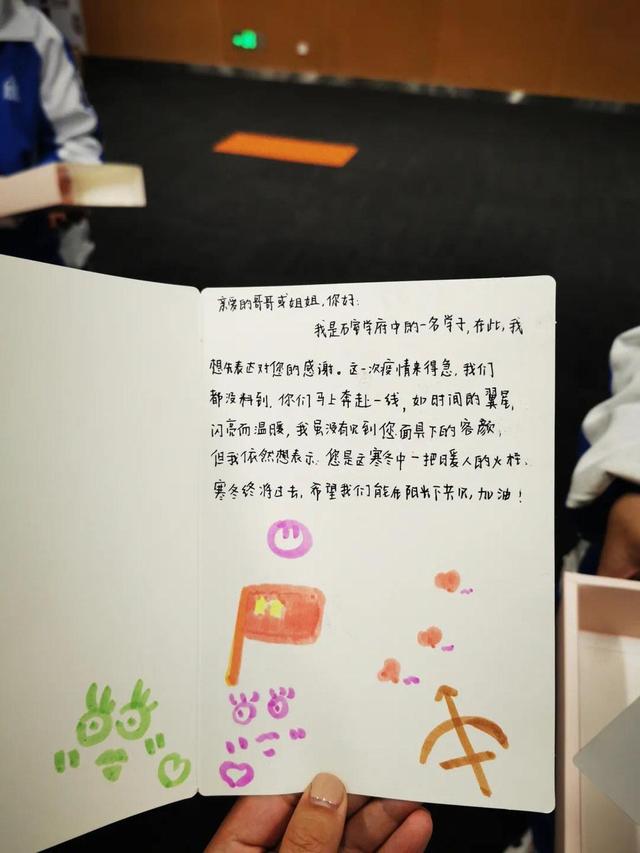 亲爱的哥哥或姐姐，你好：
我是石室学府中的一名学子，在此，我
想先表达对您的感谢。这一次疫情来得急，我们
都没料到，你们马上奔赴一线，如时间的翼星，
闪亮而温暖，我虽没有见到您面具下的容颜，
但我依然想表示：您是这寒冬中一把暖人的火炬、
寒冬终将过去，希望我们能在阳光下共见，加油！